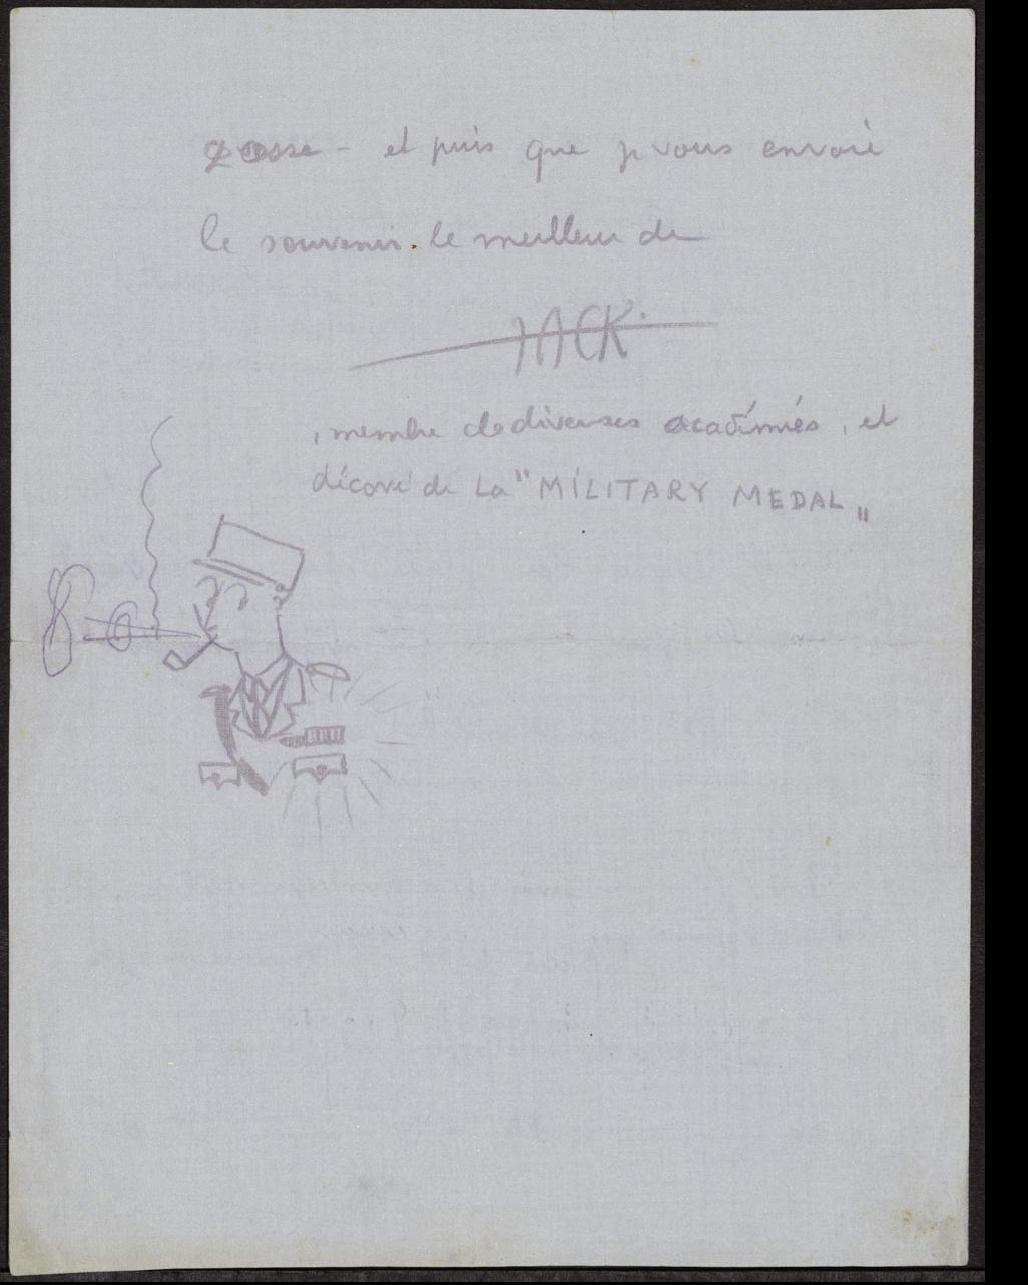 gosse - et puis que je vous envoie
le souvenir le meilleur de
JACK.
, membre de diverses académies, et
décoré de La "MILITARY MEDAL„